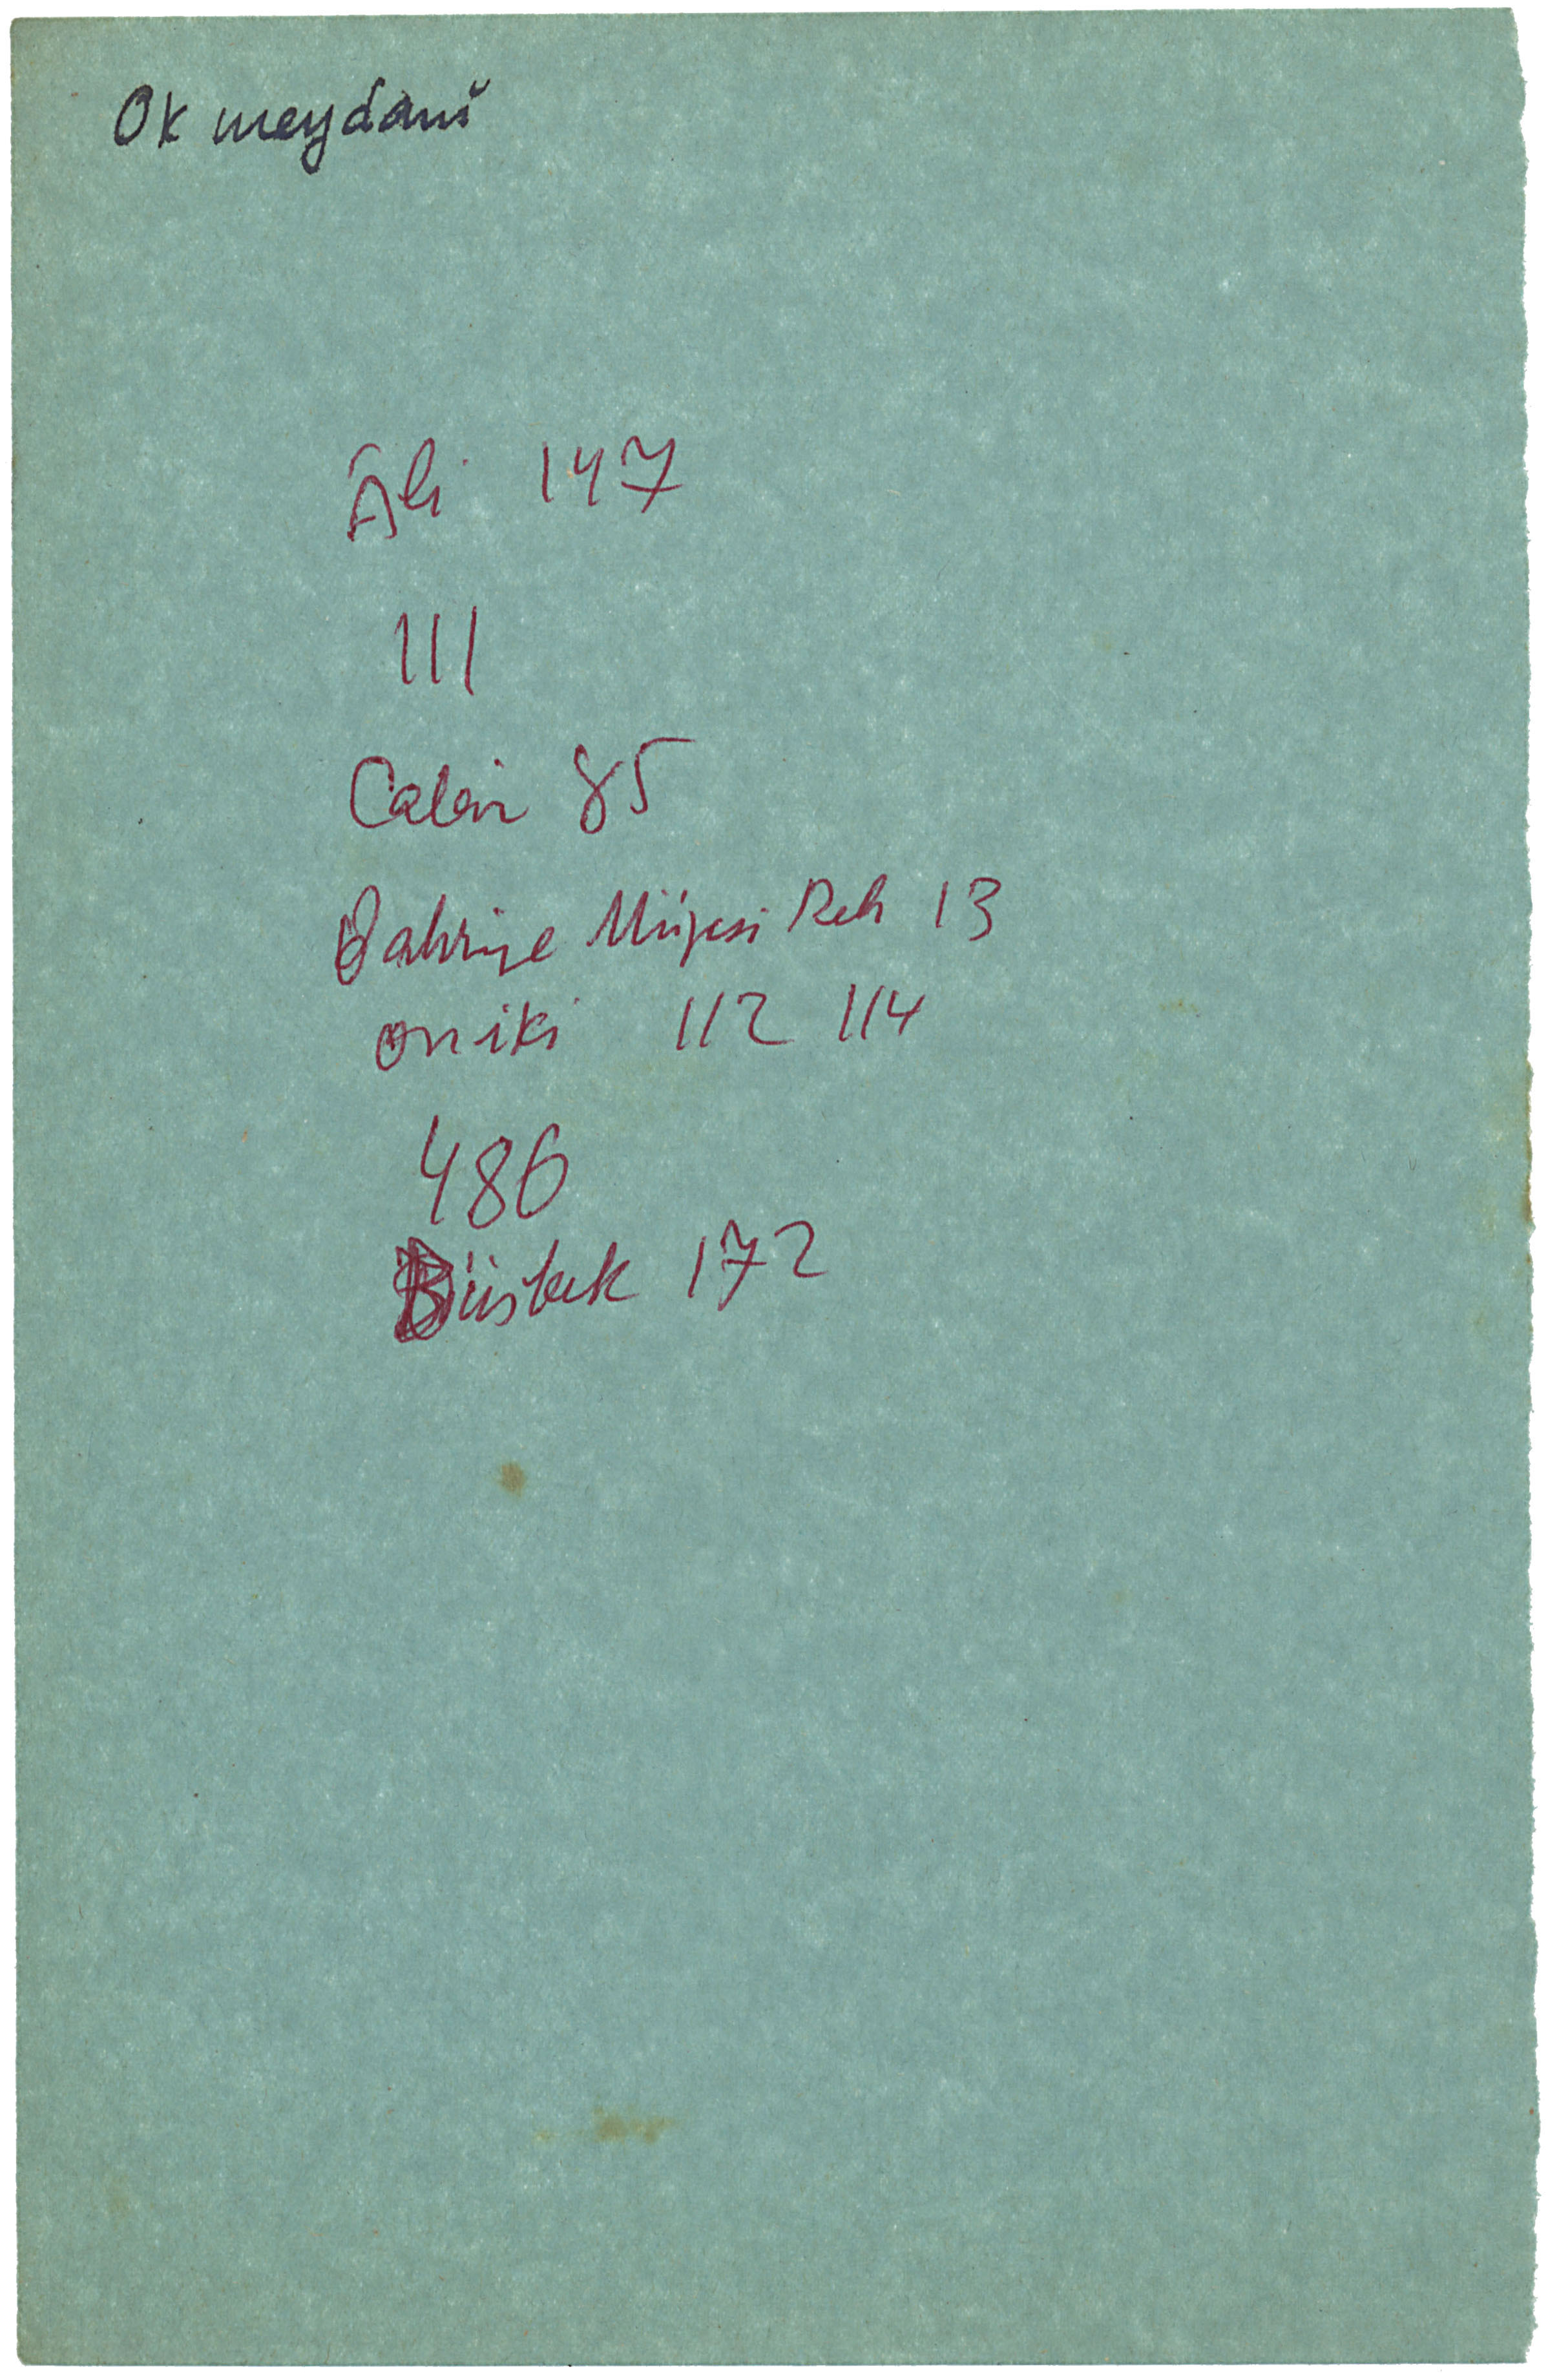 Ok meydanı
Âli 147
111
Cabir 85
Bahriye Müzesi Reh 13
on iki 112 114
486
Büsbek 172